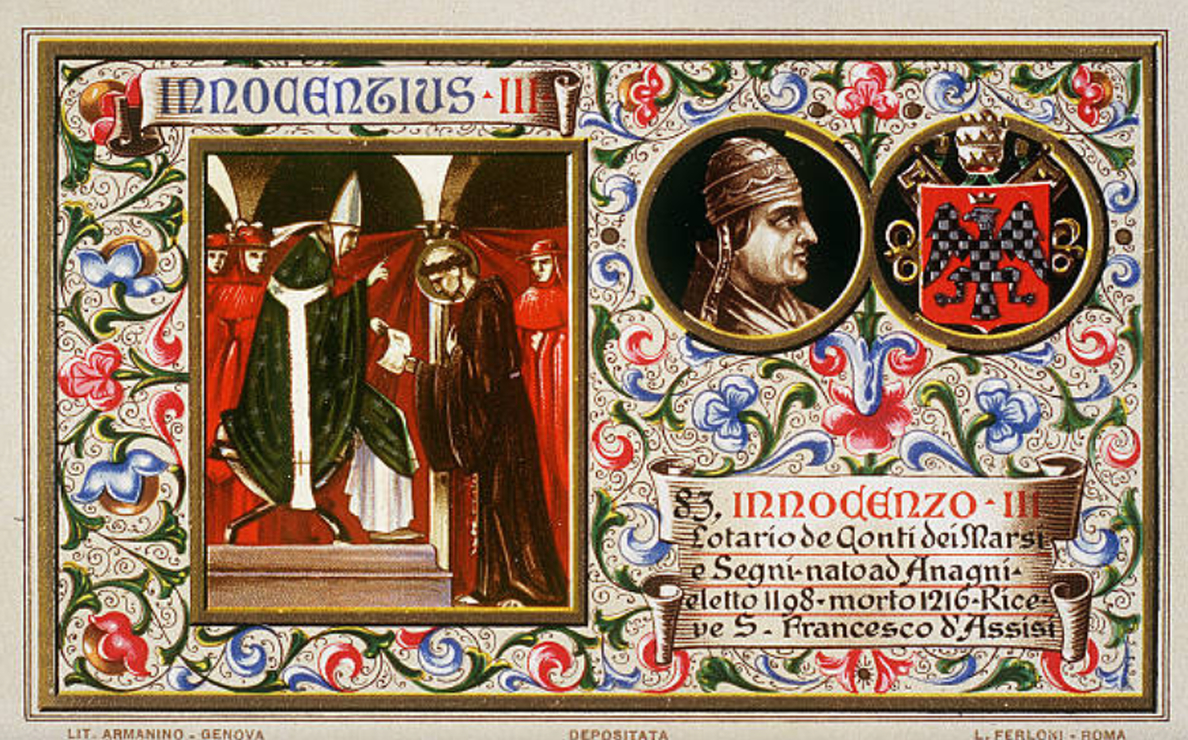 INNOCENTIUS · III
83, INNOCENZO · III
Lotario de Conti dei Marsi
e Segni · nato ad Anagni ·
eletto 1198 · morto 1216 · Rice-
ve S. Francesco d'Assisi
LIT. ARMANINO - GENOVA
DEPOSITATA
L. FERLONI - ROMA